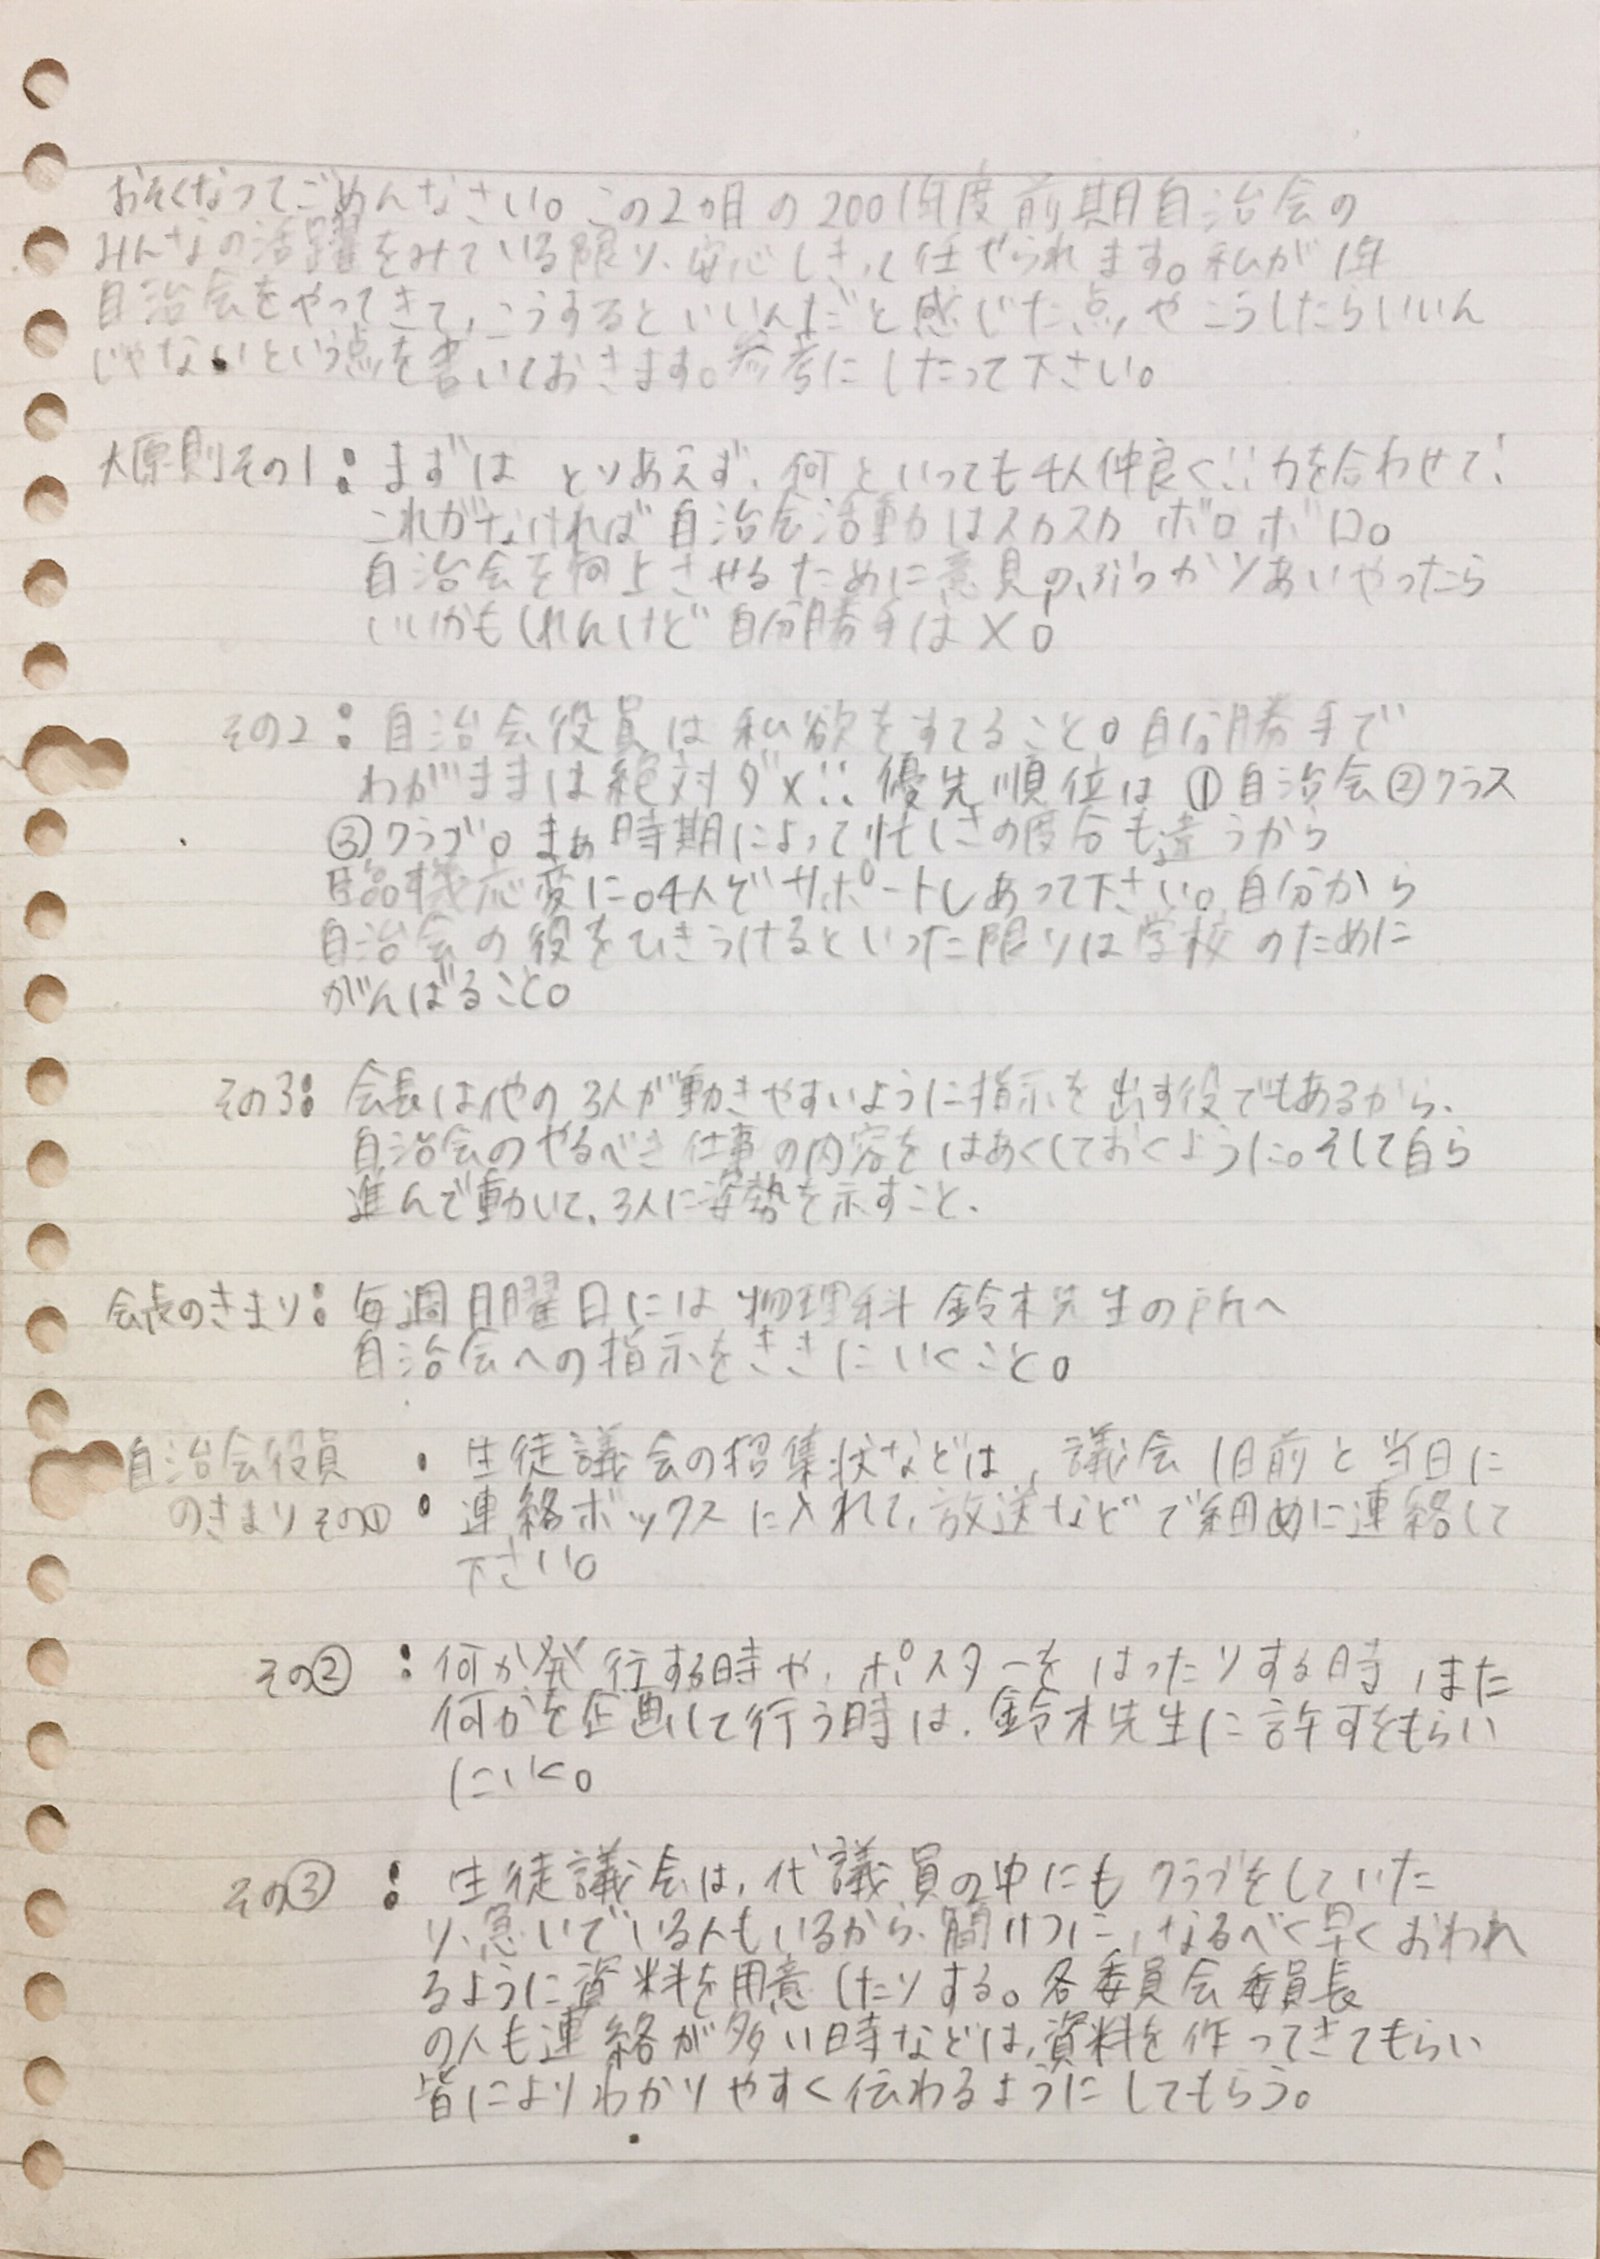 おそくなってごめんなさい。この2カ月の2001年度前期自治会の
みんなの活躍をみている限り、安心しきって任せられます。私が1年
自治会をやってきて、こうするといいんだと感じた点やこうしたらいいん
じゃないという点を書いておきます。参考にしたって下さい。
大原則その1：まずは とりあえず、何といっても4人仲良く!!力を合わせて!
これがなければ自治会活動はスカスカ ボロボロ。
自治会を向上させるために意見のぶつかりあいやったら
いいかもしれんけど自分勝手は×。
その2：自治会役員は私欲をすてること。自分勝手で
わがままは絶対ダメ!!優先順位は①自治会②クラス
③クラブ。まぁ時期によって忙しさの度合も違うから
臨機応変に。4人でサポートしあって下さい。自分から
自治会の役をひきうけるといった限りは学校のために
がんばること。
その3：会長は他の3人が動きやすいように指示を出す役でもあるから、
自治会のやるべき仕事の内容をはあくしておくように。そして自ら
進んで動いて、3人に姿勢を示すこと、
会長のきまり：毎週月曜日には物理科 鈴木先生の所へ
自治会への指示をききにいくこと。
自治会役員 ：生徒議会の招集状などは、議会1日前と当日に
のきまりその① 連絡ボックスに入れて、放送などで細めに連絡して
下さい。
その②：何か発行する時や、ポスターをはったりする時、また
何かを企画して行う時は、鈴木先生に許可をもらい
にいく。
その③：生徒議会は、代議員の中にもクラブをしていた
り、急いでいる人もいるから、簡けつに、なるべく早くおわれ
るように資料を用意したりする。各委員会委員長
の人も連絡が多い時などは、資料を作ってきてもらい
皆によりわかりやすく伝わるようにしてもらう。